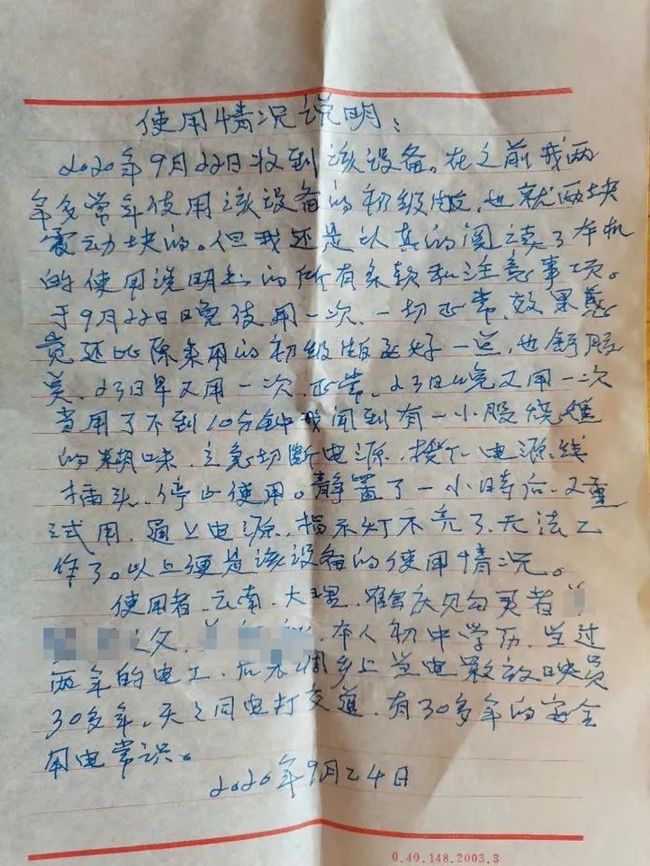 使用情况说明：
2020年9月22日收到该设备。在之前我两
年多常年使用该设备的初级版，也就两块
震动块的。但我还是认真的阅读了本机
的使用说明书的所有条款和注意事项。
于9月22日晚使用一次、一切正常、效果感
觉还比原来用的初级版更好一点，也舒服
美、23日早又用一次、正常。23日晚又用一次
当用了不到10分钟我闻到有一小股烧焦
的糊味、立急切断电源、拔下电源线
插头、停止使用。静置了一小时后、又重
试用、通上电源、指示灯不亮了、无法工
作了。以上便是该设备的使用情况。
使用者、云南、大理、鹤庆县购买者
之父、本人初中学历、当过
两年的电工、在乡上当电影放映员
30多年、天天同电打交道、有30多年的安全
用电常识。
2020年9月24日
0.40.148.2003.3